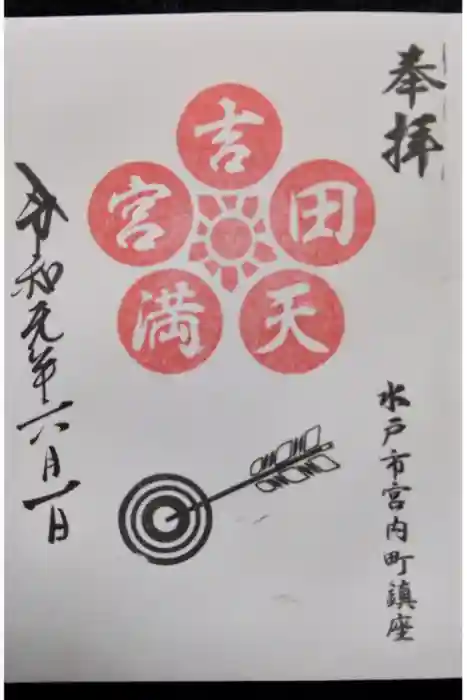 奉拝
吉田天満宮
水戸市宮内町鎮座
令和元年六月一日